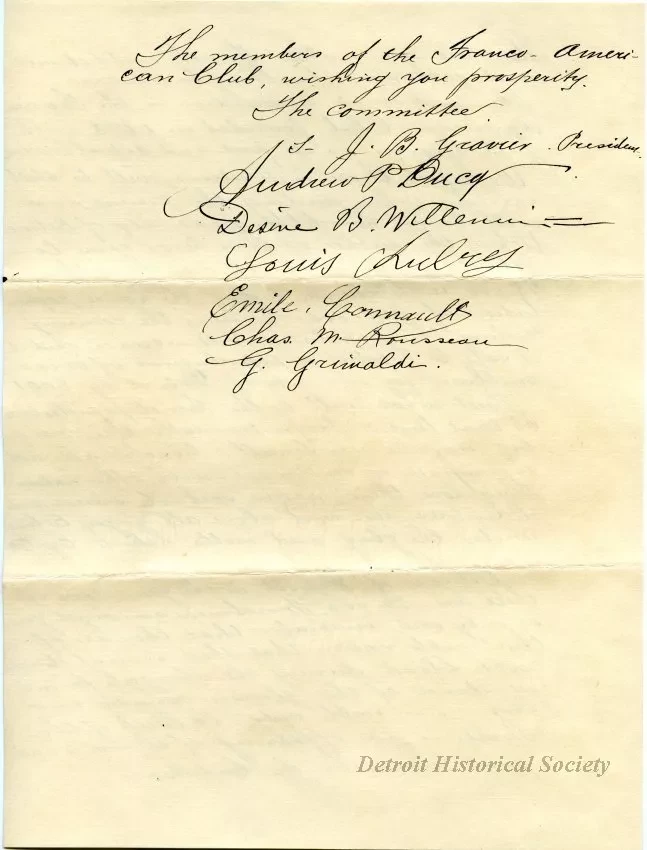 The members of the Franco-Ameri-
can Club, wishing you prosperity.
The committee
J. B. Gravier. President.
Andrew P Ducq
Desire B. Willemin
Louis Aubrey
Emile. Connault
Chas. M Rousseau
G. Grimaldi.
Detroit Historical Society